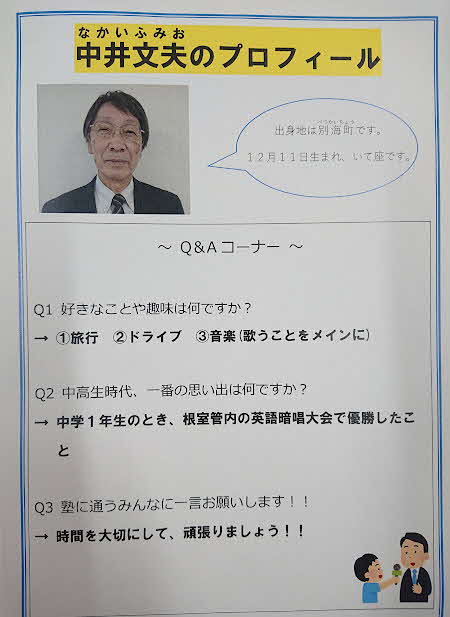 なかいふみお
中井文夫のプロフィール
べつかいちょう
出身地は別海町です。
12月11日生まれ、いて座です。
～ Q&Aコーナー ～
Q1 好きなことや趣味は何ですか？
→ ①旅行 ②ドライブ ③音楽(歌うことをメインに)
Q2 中高生時代、一番の思い出は何ですか？
→ 中学１年生のとき、根室管内の英語暗唱大会で優勝したこ
と
Q3 塾に通うみんなに一言お願いします！！
→ 時間を大切にして、頑張りましょう！！